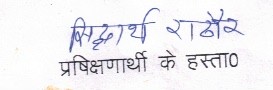 सिद्धार्थ राठौर
प्रषिक्षणार्थी के हस्ता०